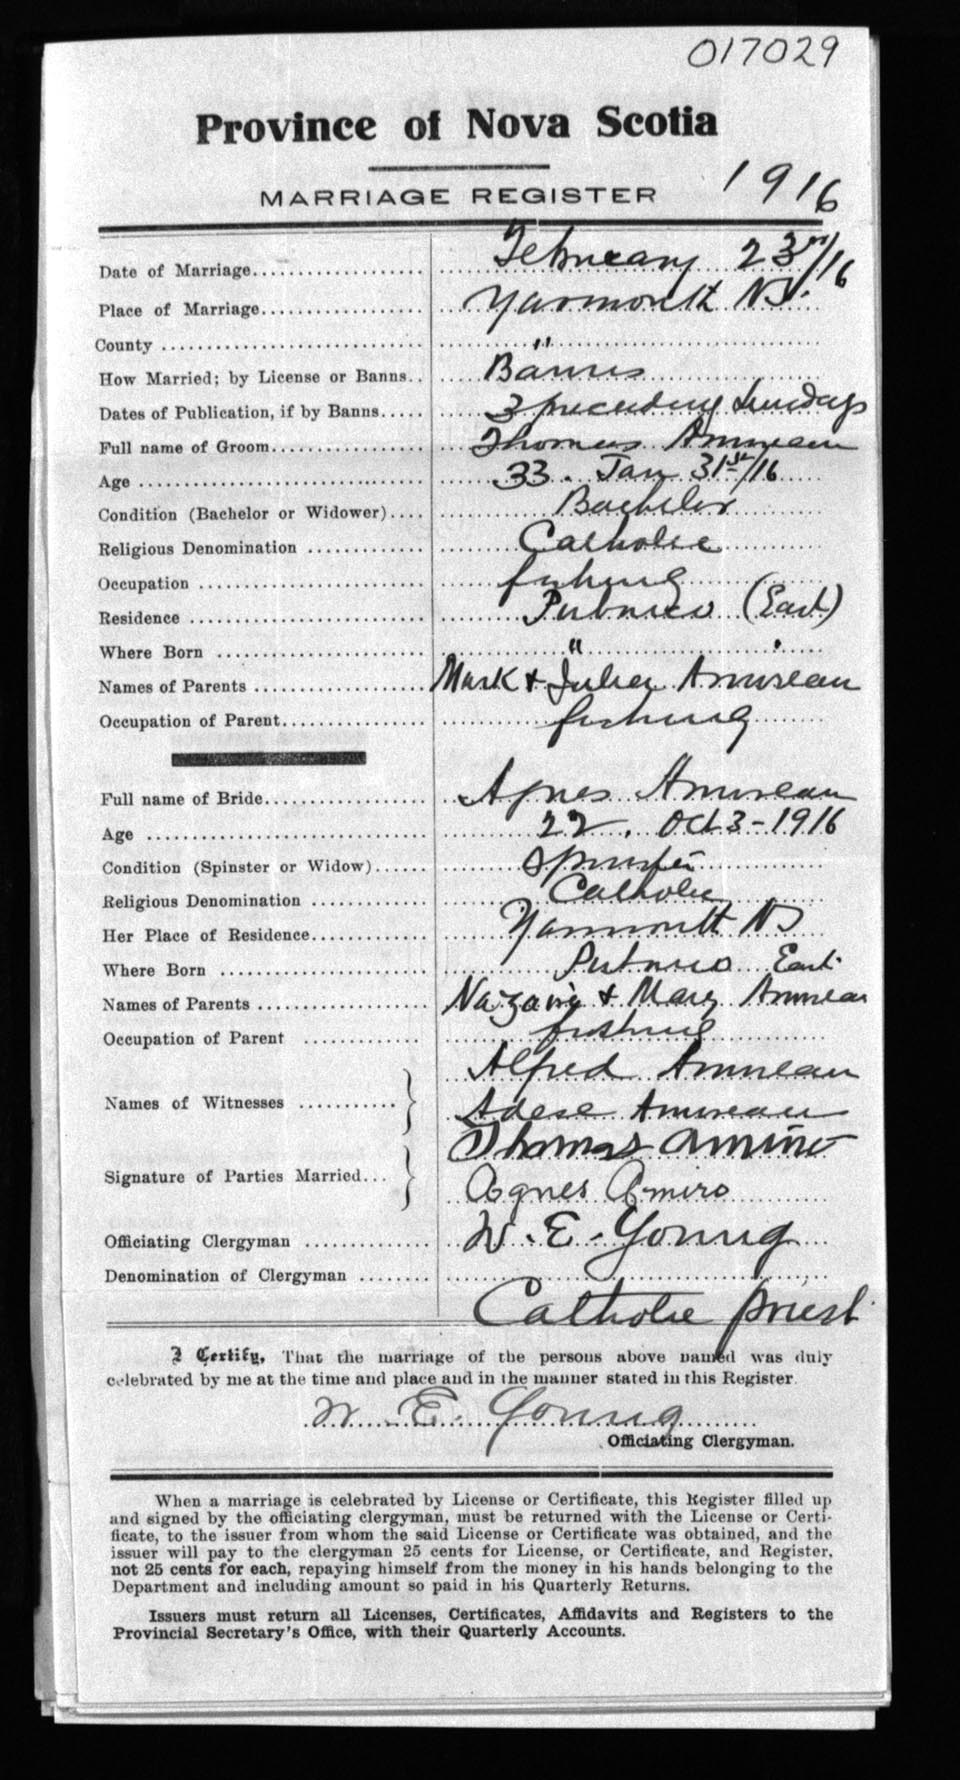 017029
Province of Nova Scotia
MARRIAGE REGISTER 1916
Date of Marriage February 23rd/16
Place of Marriage Yarmouth NS.
County "
How Married; by License or Banns Banns
Dates of Publication, if by Banns 3 preceding Sundays
Full name of Groom Thomas Amireau
Age 33. Jan 31st/16
Condition (Bachelor or Widower) Bachelor
Religious Denomination Catholic
Occupation fishing
Residence Pubnico (East)
Where Born "
Names of Parents Mark + Julier Amireau
Occupation of Parent fishing
Full name of Bride Agnes Amireau
Age 22. Oct 3-1916
Condition (Spinster or Widow) Spinster
Religious Denomination Catholic
Her Place of Residence Yarmouth NS
Where Born Pubnico East
Names of Parents + Mary Amireau
Occupation of Parent fishing
Alfred Amireau
Names of Witnesses
Adese Amireau
Thomas amiro
Signature of Parties Married
Agnes Amiro
Officiating Clergyman W. E. Young
Denomination of Clergyman
Catholic priest
I Certify, That the marriage of the persons above named was duly
celebrated by me at the time and place and in the manner stated in this Register.
W. E. Young
Officiating Clergyman.
When a marriage is celebrated by License or Certificate, this Register filled up
and signed by the officiating clergyman, must be returned with the License or Certi-
ficate, to the issuer from whom the said License or Certificate was obtained, and the
issuer will pay to the clergyman 25 cents for License, or Certificate, and Register,
not 25 cents for each, repaying himself from the money in his hands belonging to the
Department and including amount so paid in his Quarterly Returns.
Issuers must return all Licenses, Certificates, Affidavits and Registers to the
Provincial Secretary's Office, with their Quarterly Accounts.